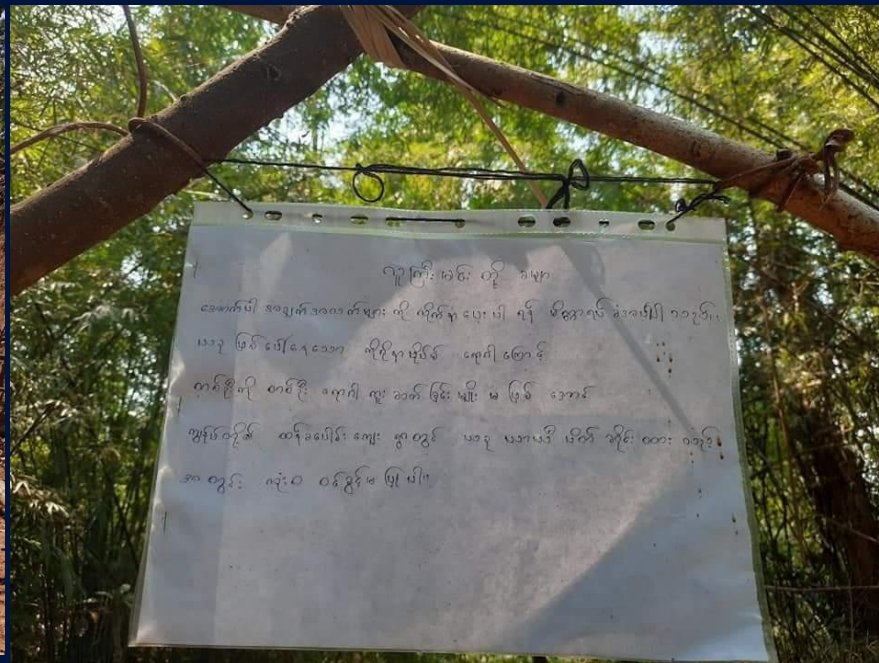 လူကြီးမင်း တို့ ခမျာ
အောက်ပါ အချက်အလက်များ ကို လိုက်နာ ပေးပါ ရန် မေတ္တာရပ်ခံအပ်ပါ သည်။
ယခု ဖြစ်ပေါ်နေသော ကိုရိုနာ ရောဂါ ကြောင့်
တစ်ဦးကို တစ်ဦး ရောဂါ ကူး ခြင်း မျိုး မ ဖြစ် အောင်
ကျွန်ုပ်တို့၏ ထန်းခပေါင်း ကျေး ရွာ တွင် ယခု ပိတ် ဆိုင်း ထား သည့်
အတွင်း လုံး၀ ၀င်ခွင့် မ ပြု ပါ။